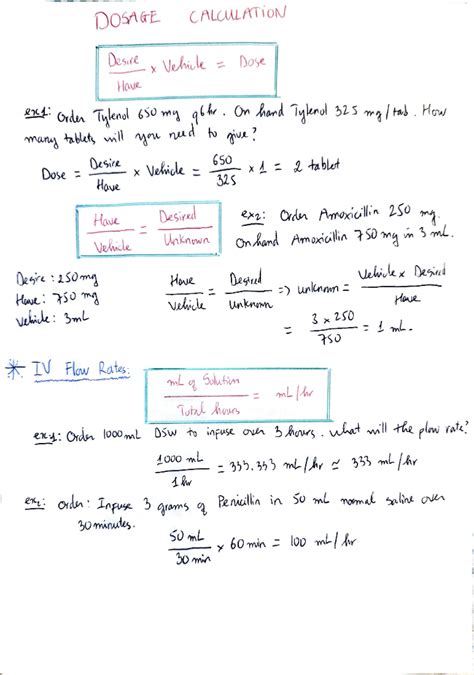 DOSAGE CALCULATION
Desire / Have × Vehicle = Dose
ex1: Order Tylenol 650 mg q6hr. On hand Tylenol 325 mg/tab. How
many tablets will you need to give?
Dose = Desire / Have × Vehicle = 650 / 325 × 1 = 2 tablet
Have / Vehicle = Desired / Unknown
ex2: Order Amoxicillin 250 mg.
On hand Amoxicillin 750 mg in 3 mL.
Desire : 250 mg
Have : 750 mg
Vehicle : 3 mL
Have / Vehicle = Desired / Unknown => unknown = Vehicle × Desired / Have
= 3 × 250 / 750 = 1 mL.
* IV Flow Rates:
mL of Solution / Total hours = mL/hr
ex1: Order 1000 mL D5W to infuse over 3 hours. What will the flow rate?
1000 mL / 1 hr = 333.333 mL/hr ≃ 333 mL/hr
ex2: Order: Infuse 3 grams of Penicillin in 50 mL normal saline over
30 minutes.
50 mL / 30 min × 60 min = 100 mL/hr